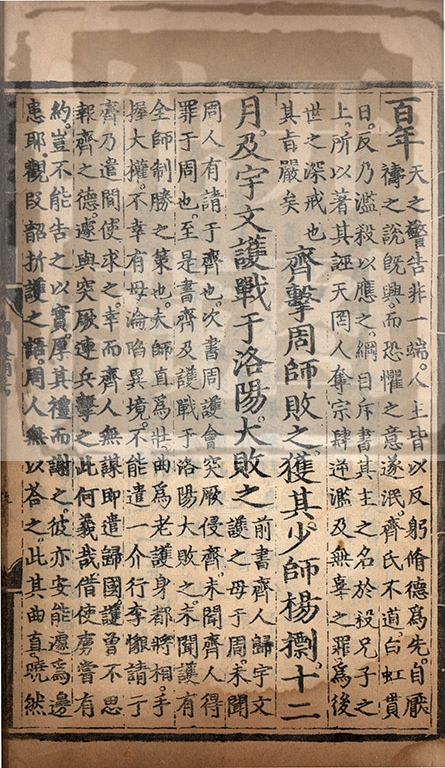 百年
天之警告非一端人主皆以反躬脩德爲先自厭
禱之說旣興而恐懼之意遂泯齊氏不道白虹貫
日反乃濫殺以應之綱目斥書其主之名於殺兄子之
上所以著其誣天罔人奪宗肆逆濫及無辜之罪爲後
世之深戒也
其旨嚴矣
齊擊周師敗之獲其少師楊摽十二
月及宇文護戰于洛陽大敗之
前書齊人歸宇文
護之母于周未聞
周人有請于齊也次書周護會突厥侵齊未聞齊人得
罪于周也至是書齊及護戰于洛陽大敗之未聞護有
全師制勝之策也夫師直爲壯曲爲老護身都將相手
握大權不幸有母淪陷異境不能遣一介行李懷請丁
齊乃遣間使求之幸而齊人無謀即遣歸國護曾不思
報齊之德遽與突厥連兵擊之此何義哉借使虜嘗有
約豈不能告之以實厚其禮而謝之彼亦安能遽爲邊
患耶觀段韶折護之語周人無以荅之此其曲直曉然